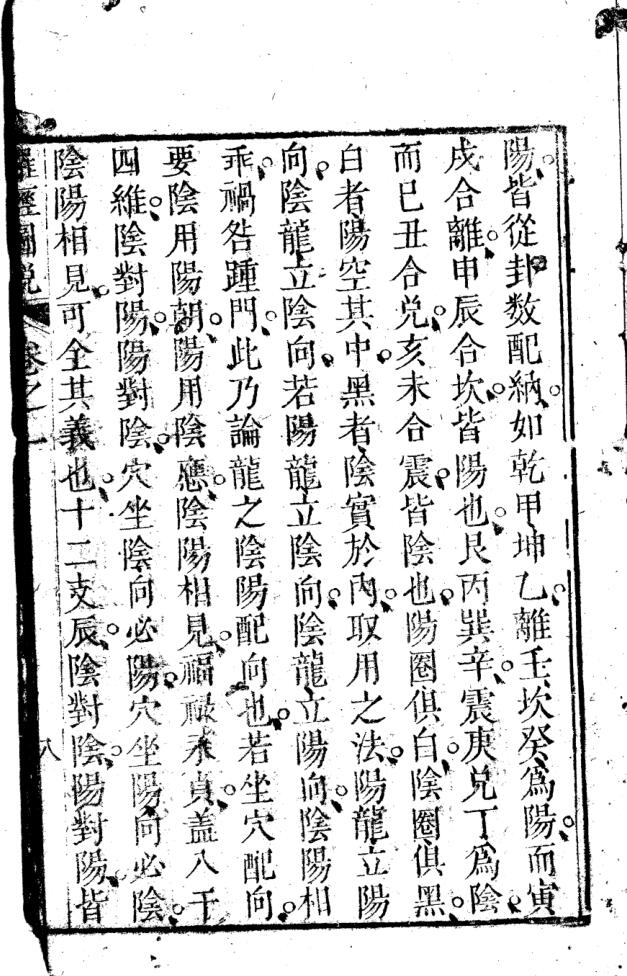 陽皆從卦数配納如乾甲坤乙離壬坎癸為陽而寅
戌合離申辰合坎皆陽也艮丙巽辛震庚兌丁為陰
而巳丑合兌亥未合震皆陰也陽圈俱白陰圈俱黑
白者陽空其中黑者陰實於內取用之法陽龍立陽
向陰龍立陰向若陽龍立陰向陰龍立陽向陰陽相
乖禍咎踵門此乃論龍之陰陽配向也若坐穴配向
要陰用陽朝陽用陰應陰陽相見福祿永貞盖八干
四維陰對陽陽對陰穴坐陰向必陽穴坐陽向必陰
陰陽相見可全其義也十二支辰陰對陰陽對陽皆
羅經圖說 卷之一 八